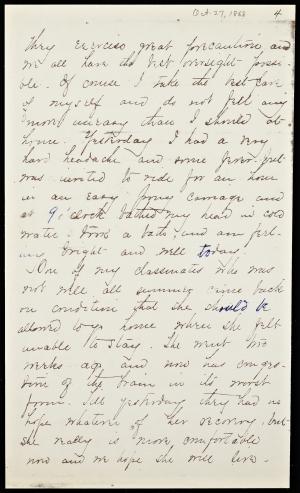 Oct 27, 1888 4
They exercise great precaution and
we all have the best oversight possi-
ble. Of course I take the best care
of myself and do not fell any
more uneasy than I should at
home. Yesterday I had a very
hard headache and some fever but
was invited to ride for an hour
in an easy carriage and
at 9 o'clock bathed my head in cold
water took a bath and am feel-
ing bright and well today.
One of my classmates who was
not well all summer came back
on condition that she should be
allowed to go home when she felt
unable to stay. She went two
weeks ago and now has conges-
tion of the brain in its worst
form. Till yesterday they had no
hope whatever of her recovery, but
she really is more comfortable
now and we hope she will live.